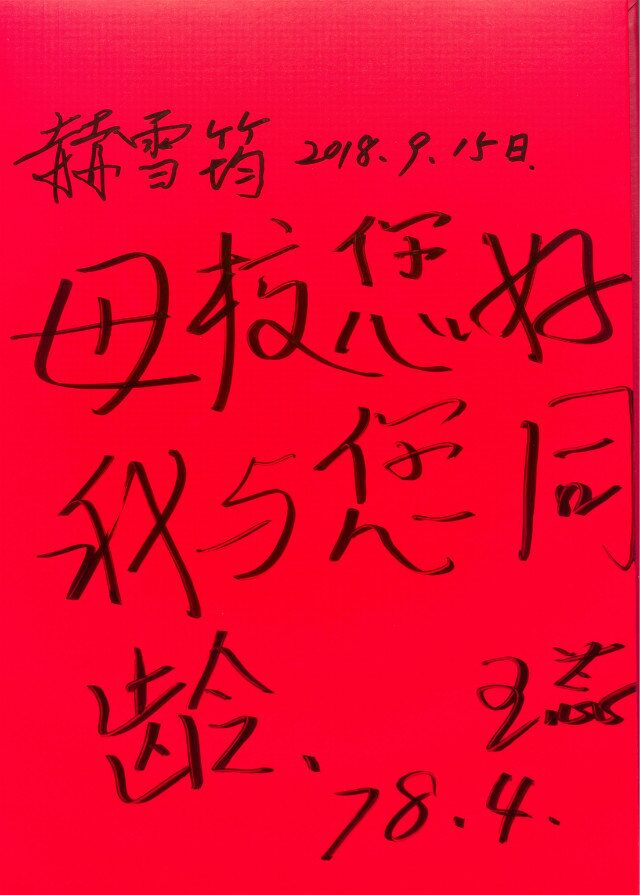 赫雪筠 2018.9.15日.
母校您好
我与您同
龄、
王蕊
78.4.